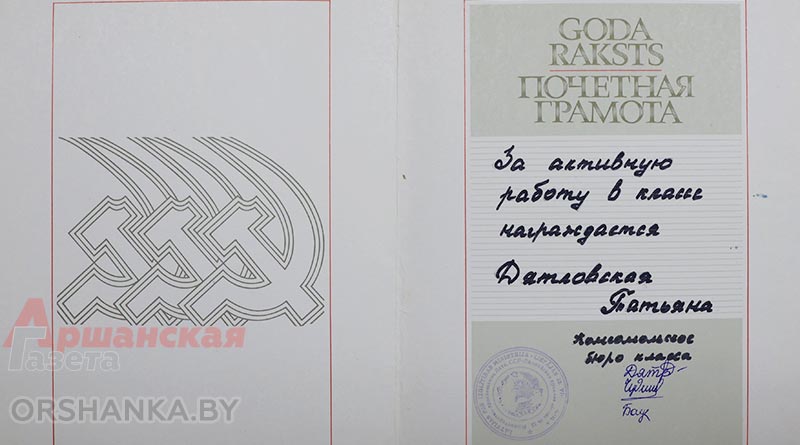 Аршанская
Газета
ORSHANKA.BY
GODA
RAKSTS
ПОЧЕТНАЯ
ГРАМОТА
За активную
работу в классе
награждается
Дятловская
Татьяна
Комсомольское
бюро класса